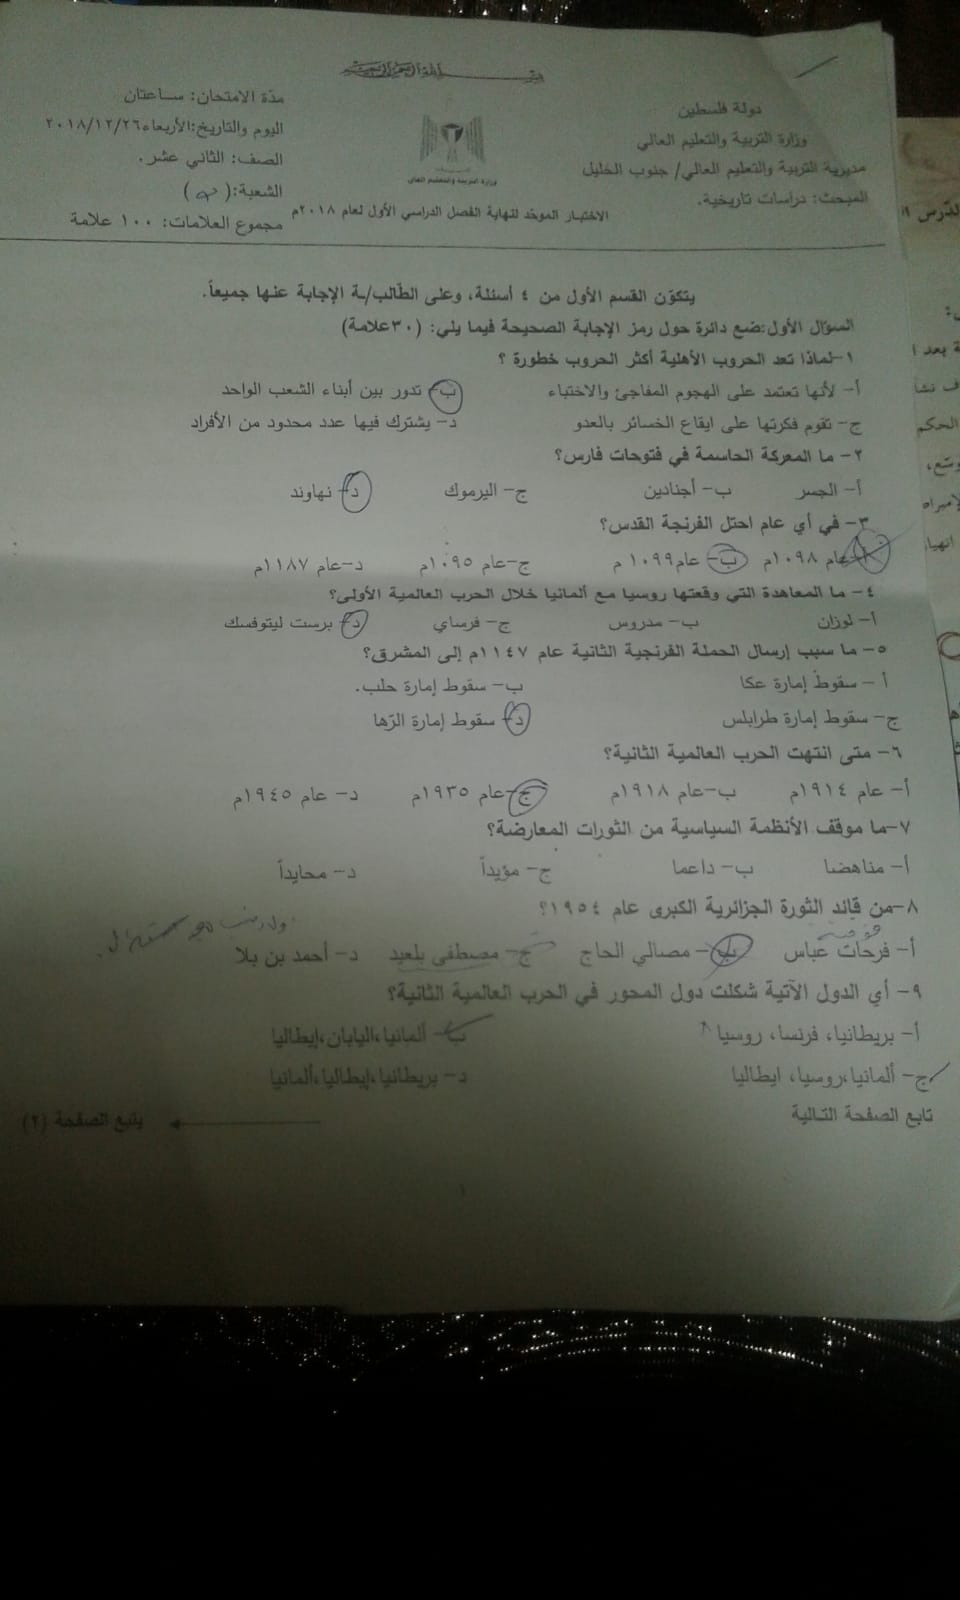 دولة فلسطين
وزارة التربية والتعليم العالي
مديرية التربية والتعليم العالي/ جنوب الخليل
المبحث: دراسات تاريخية.
وزارة التربية والتعليم العالي
الاختبار الموحد لنهاية الفصل الدراسي الأول لعام ٢٠١٨م
مدّة الامتحان: ساعتان
اليوم والتاريخ:الأربعاء٢٠١٨/١٢/٢٦
الصف: الثاني عشر.
الشعبة:( )
مجموع العلامات: ١٠٠ علامة
يتكوّن القسم الأول من ٤ أسئلة، وعلى الطّالب/ـة الإجابة عنها جميعاً.
السؤال الأول:ضع دائرة حول رمز الإجابة الصحيحة فيما يلي: (٣٠علامة)
١-لماذا تعد الحروب الأهلية أكثر الحروب خطورة ؟
أ- لأنها تعتمد على الهجوم المفاجئ والاختباء ب- تدور بين أبناء الشعب الواحد
ج- تقوم فكرتها على ايقاع الخسائر بالعدو د- يشترك فيها عدد محدود من الأفراد
٢- ما المعركة الحاسمة في فتوحات فارس؟
أ- الجسر ب- أجنادين ج- اليرموك د- نهاوند
٣- في أي عام احتل الفرنجة القدس؟
أ-عام ١٠٩٨م ب- عام١٠٩٩ م ج-عام ١٠٩٥م د-عام ١١٨٧م
٤- ما المعاهدة التي وقعتها روسيا مع ألمانيا خلال الحرب العالمية الأولى؟
أ- لوزان ب- مدروس ج- فرساي د- برست ليتوفسك
٥- ما سبب إرسال الحملة الفرنجية الثانية عام ١١٤٧م إلى المشرق؟
أ - سقوط إمارة عكا ب- سقوط إمارة حلب.
ج- سقوط إمارة طرابلس د- سقوط إمارة الرّها
٦- متى انتهت الحرب العالمية الثانية؟
أ- عام ١٩١٤م ب-عام ١٩١٨م ج-عام ١٩٣٥م د- عام ١٩٤٥م
٧-ما موقف الأنظمة السياسية من الثورات المعارضة؟
أ- مناهضا ب- داعما ج- مؤيداً د- محايداً
٨-من قائد الثورة الجزائرية الكبرى عام ١٩٥٤؟
أ- فرحات عباس ب- مصالي الحاج ج- مصطفى بلعيد د- أحمد بن بلا
٩- أي الدول الآتية شكلت دول المحور في الحرب العالمية الثانية؟
أ- بريطانيا، فرنسا، روسيا ب- ألمانيا،اليابان،إيطاليا
ج- ألمانيا،روسيا، ايطاليا د- بريطانيا،إيطاليا،ألمانيا
تابع الصفحة التالية يتبع الصفحة (٢)
١